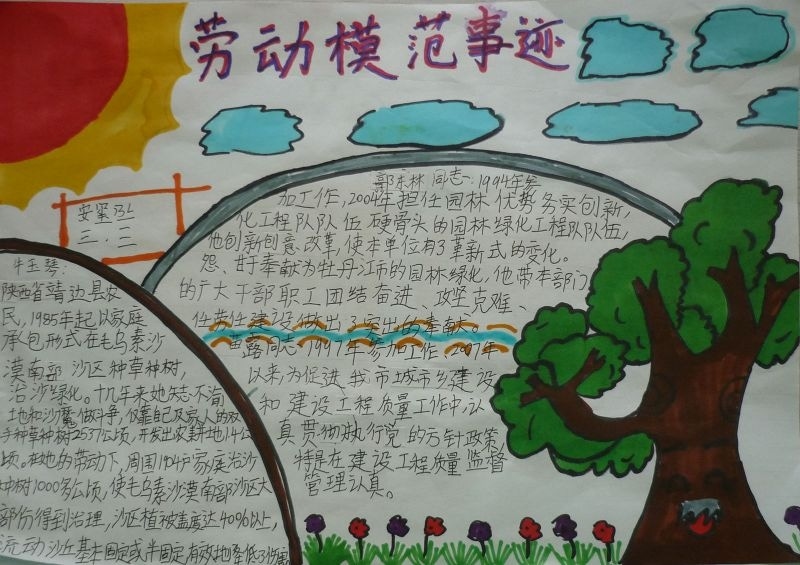 劳动模范事迹
三.三
牛玉琴:
陕西省靖边县农
民,1985年起以家庭
承包形式在毛乌素沙
漠南部沙区种草种树,
治沙绿化。十几年来她矢志不渝
土地和沙魔做斗争,仅靠自己及家人的双
手种草种树2537公顷,开发出农耕地14公
顷。在她的劳动下,周围1904户家庭治沙
种树1000多公顷,使毛乌素沙漠南部沙区大
部份得到治理,沙区植被盖度达40%以上,
流动沙丘基本固定或半固定,有效地降低了
郭东林同志:1994年参
加工作,2004年担任园林优势务实创新,
化工程队队伍硬骨头的园林绿化工程队队伍,
他创新创意、改革,使本单位有了革新式的变化。
怨、甘于奉献为牡丹江市的园林绿化,他带本部门
的广大干部职工团结奋进、攻坚克难、
任劳任建设做出了突出的奉献。
露同志1997年参加工作,2007年
以来,为促进我市城市乡建设
和建设工程质量工作中,认
真贯彻执行党的方针政策,
特是在建设工程质量监督
管理认真。